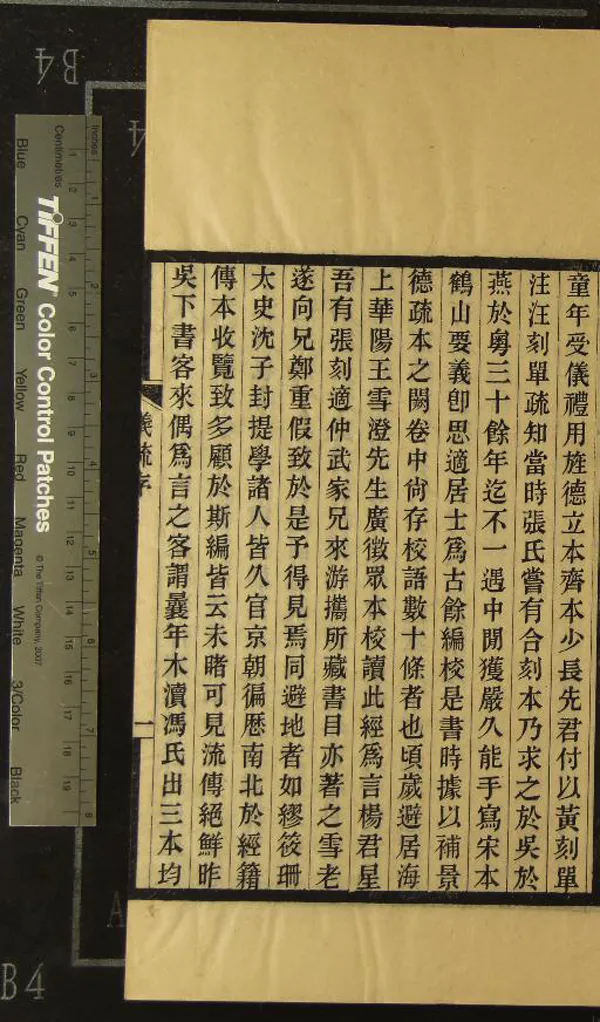 童年受儀禮用旌德立本齊本少長先君付以黃刻單
注汪刻單疏知當時張氏嘗有合刻本乃求之於吳於
燕於粵三十餘年迄不一遇中閒獲嚴久能手寫宋本
鶴山要義卽思適居士爲古餘編校是書時據以補景
德疏本之闕卷中尙存校語數十條者也頃歲避居海
上華陽王雪澄先生廣徵眾本校讀此經爲言楊君星
吾有張刻適仲武家兄來游攜所藏書目亦著之雪老
遂向兄鄭重假致於是予得見焉同避地者如繆筱珊
太史沈子封提學諸人皆久官京朝徧歷南北於經籍
傳本收覽致多顧於斯編皆云未睹可見流傳絕鮮昨
吳下書客來偶爲言之客謂曩年木瀆馮氏出三本均
儀疏序
二
B4
4
B4
A
Inches
Centimetres
TIFFEN® Color Control Patches
© The Tiffen Company, 2007
Blue
Cyan
Green
Yellow
Red
Magenta
White
3/Color
Black
1 2 3 4 5 6 7 8
1 2 3 4 5 6 7 8 9 10 11 12 13 14 15 16 17 18 19